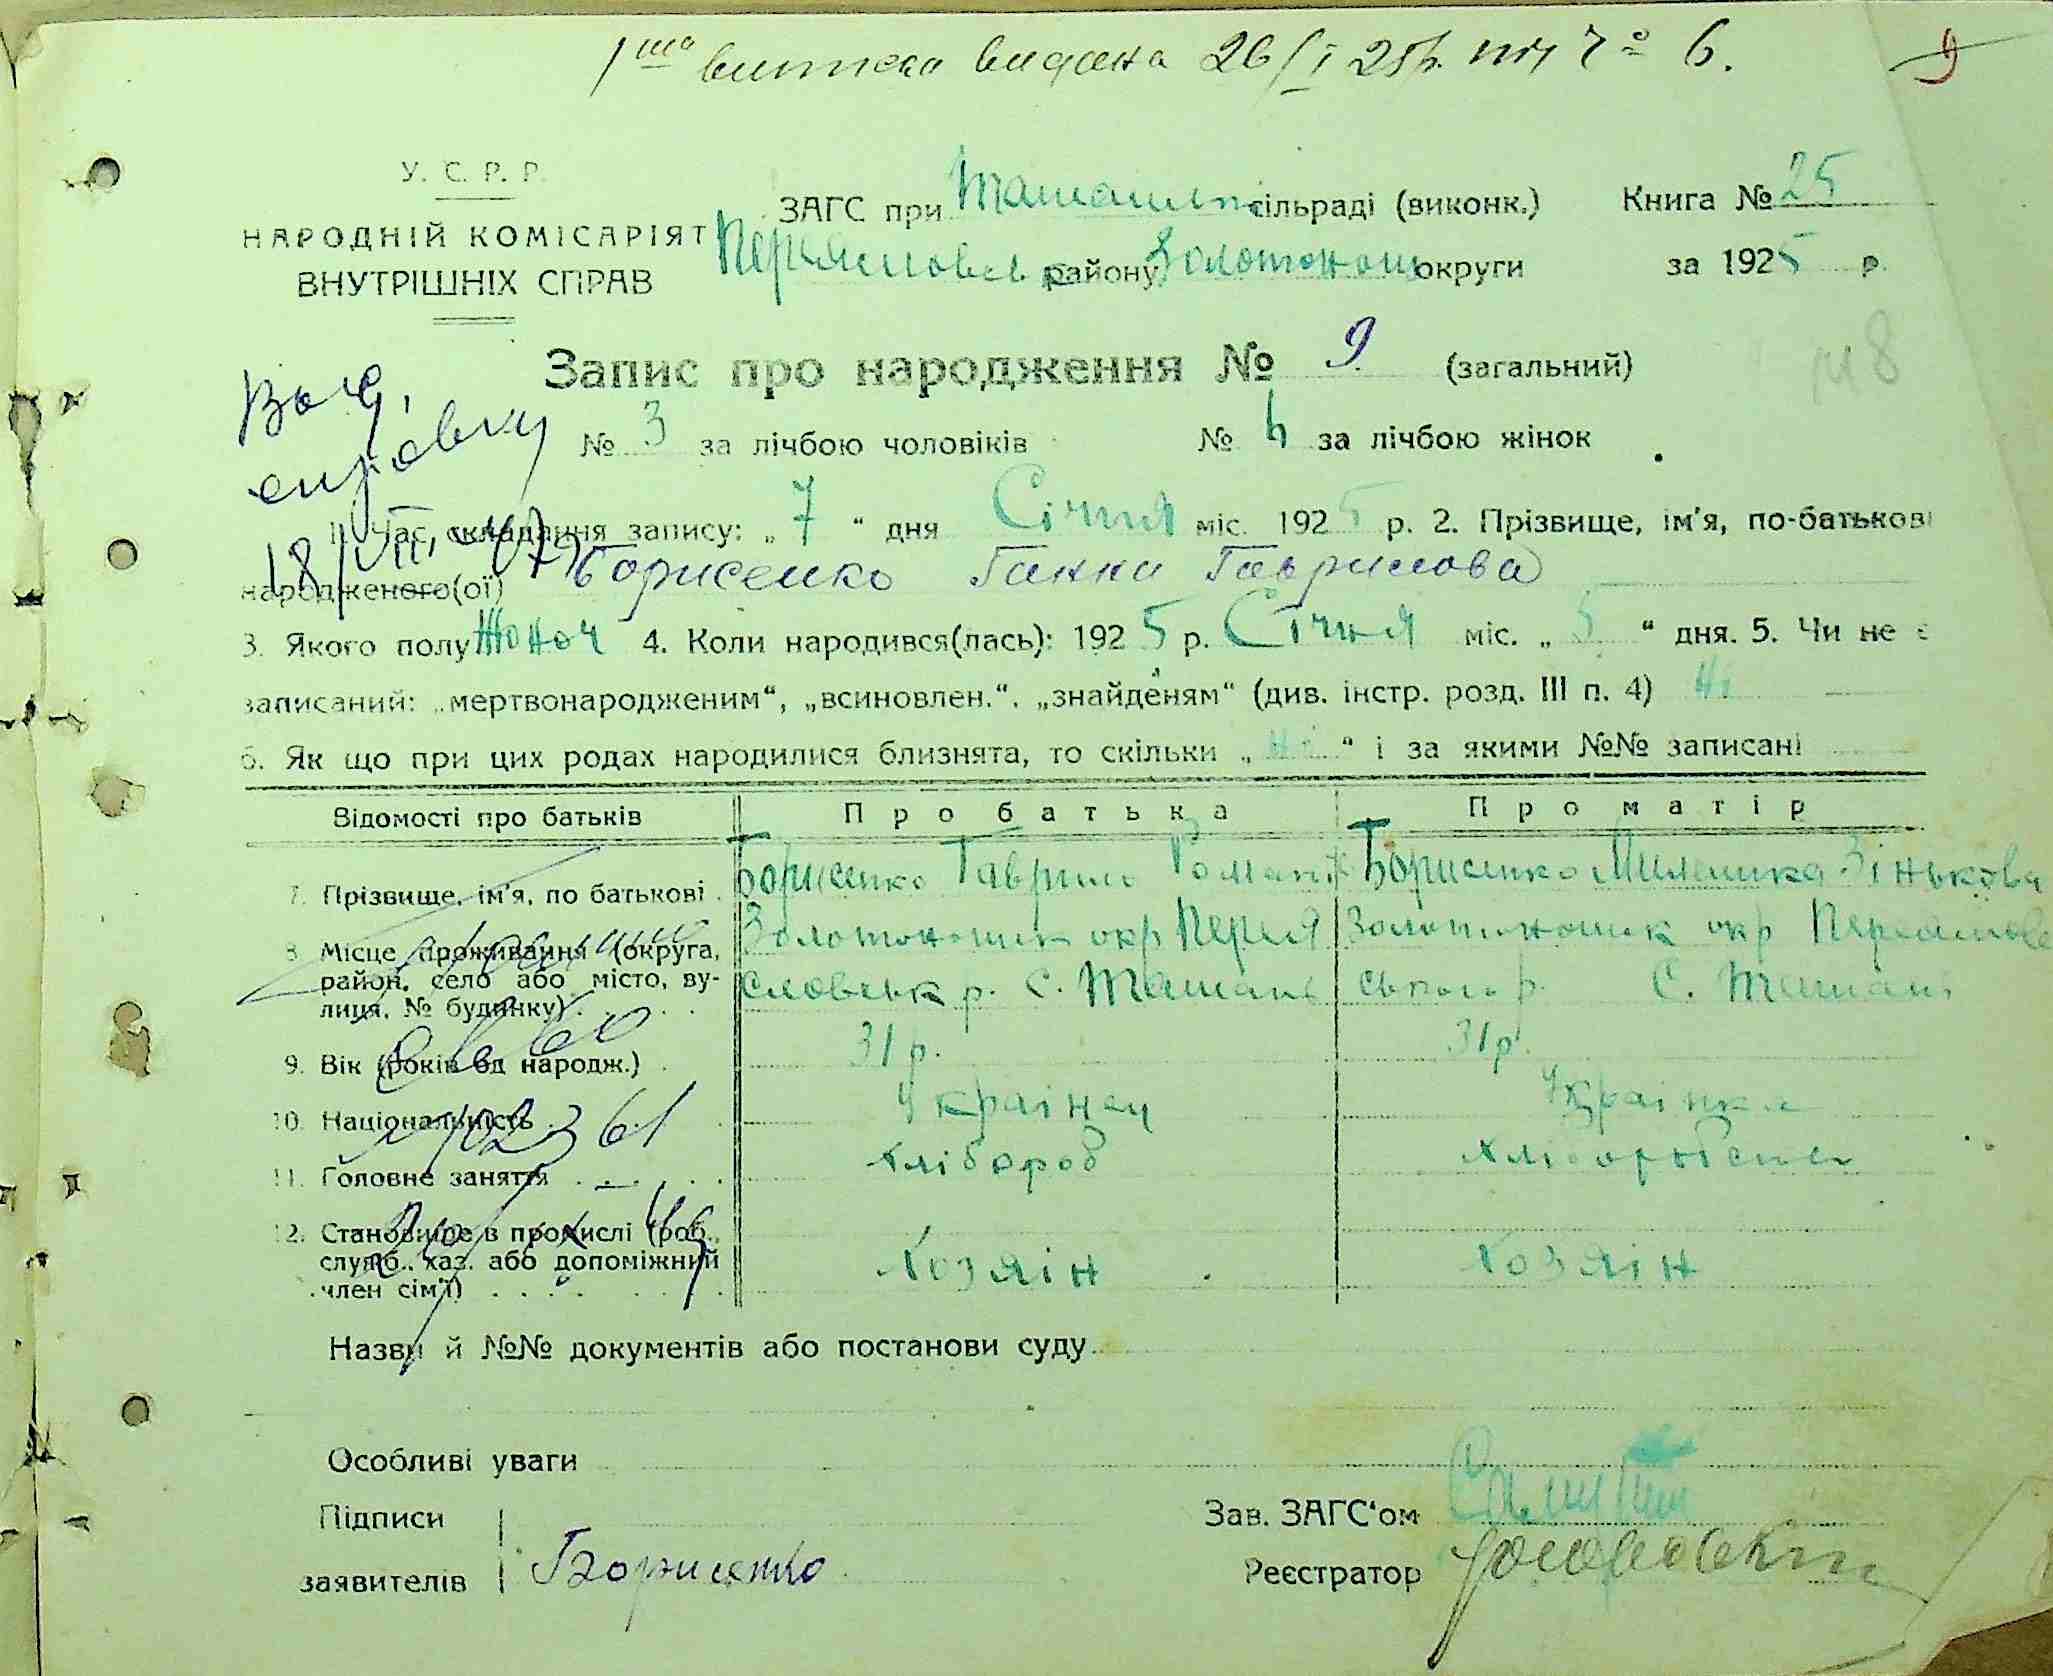 1ша виписка видана 26/I 25р. під № 6.
9
У. С. Р. Р.
НАРОДНІЙ КОМІСАРІЯТ
ВНУТРІШНІХ СПРАВ
ЗАГС при Ташанськ сільраді (виконк.) Книга № 25
Переяславськ району Золотоноськ округи за 1925 р.
Запис про народження № 9 (загальний)
118
Выд.
справку
18/VII-47
№ 3 за лічбою чоловіків № 6 за лічбою жінок
1. Час складання запису: „7“ дня Січня міс. 1925 р. 2. Прізвище, ім'я, по-батькові
народженого(ої) Борисенко Ганна Гаврилова
3. Якого полу Жіноч 4. Коли народився(лась): 1925 р. Січня міс. „5“ дня. 5. Чи не є
записаний: „мертвонародженим“, „всиновлен.“, „знайденям“ (див. інстр. розд. III п. 4) Ні
6. Як що при цих родах народилися близнята, то скільки „Ні“ і за якими №№ записані
Відомості про батьків Про батька Про матір
7. Прізвище, ім'я, по батькові . Борисенко Гаврило Роман Борисенко Миланика Зінькова
8. Місце проживання (округа, район, село або місто, вулиця, № будинку) Золотоношськ окр Переяславськ р. С. Ташань Золотоношськ окр Переяславського р. С. Ташань
9. Вік (років од народж.) . 31 р. 31 р.
10. Національність . Українец Українка
11. Головне заняття . . . . Хлібороб Хліборобка
12. Становище в промислі (роб., служб., хаз. або допоміжний член сім'ї) . . . . Хозяін Хозяін
102361
Назви й №№ документів або постанови суду
Особливі уваги
Підписи
заявителів Борисенко
Зав. ЗАГС'ом
Реєстратор